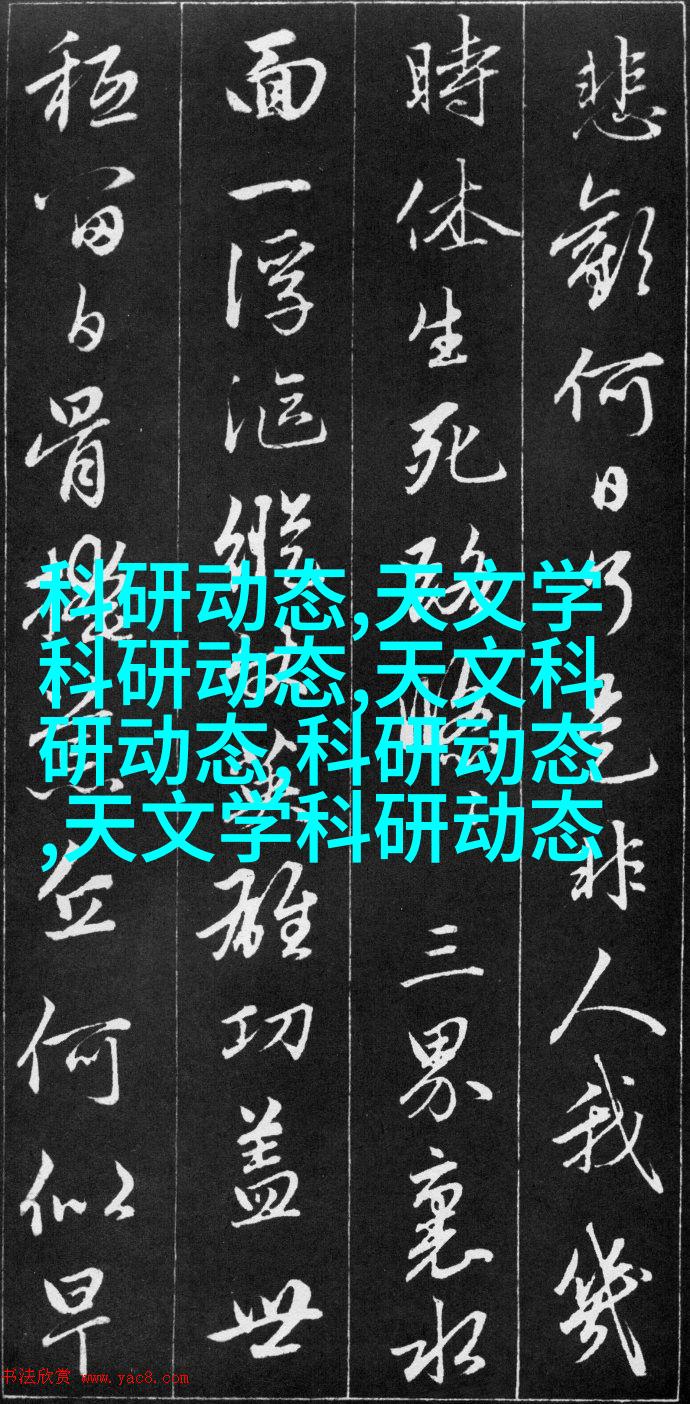 悲歡何日了是非人我幾
時休生死路
三界裏水
面一浮漚縱
雄功蓋世
秪留白骨
丘何似早
科研动态,天文学
科研动态,天文科
研动态,科研动态
,天文学科研动态
书法欣赏 www.yac8.com